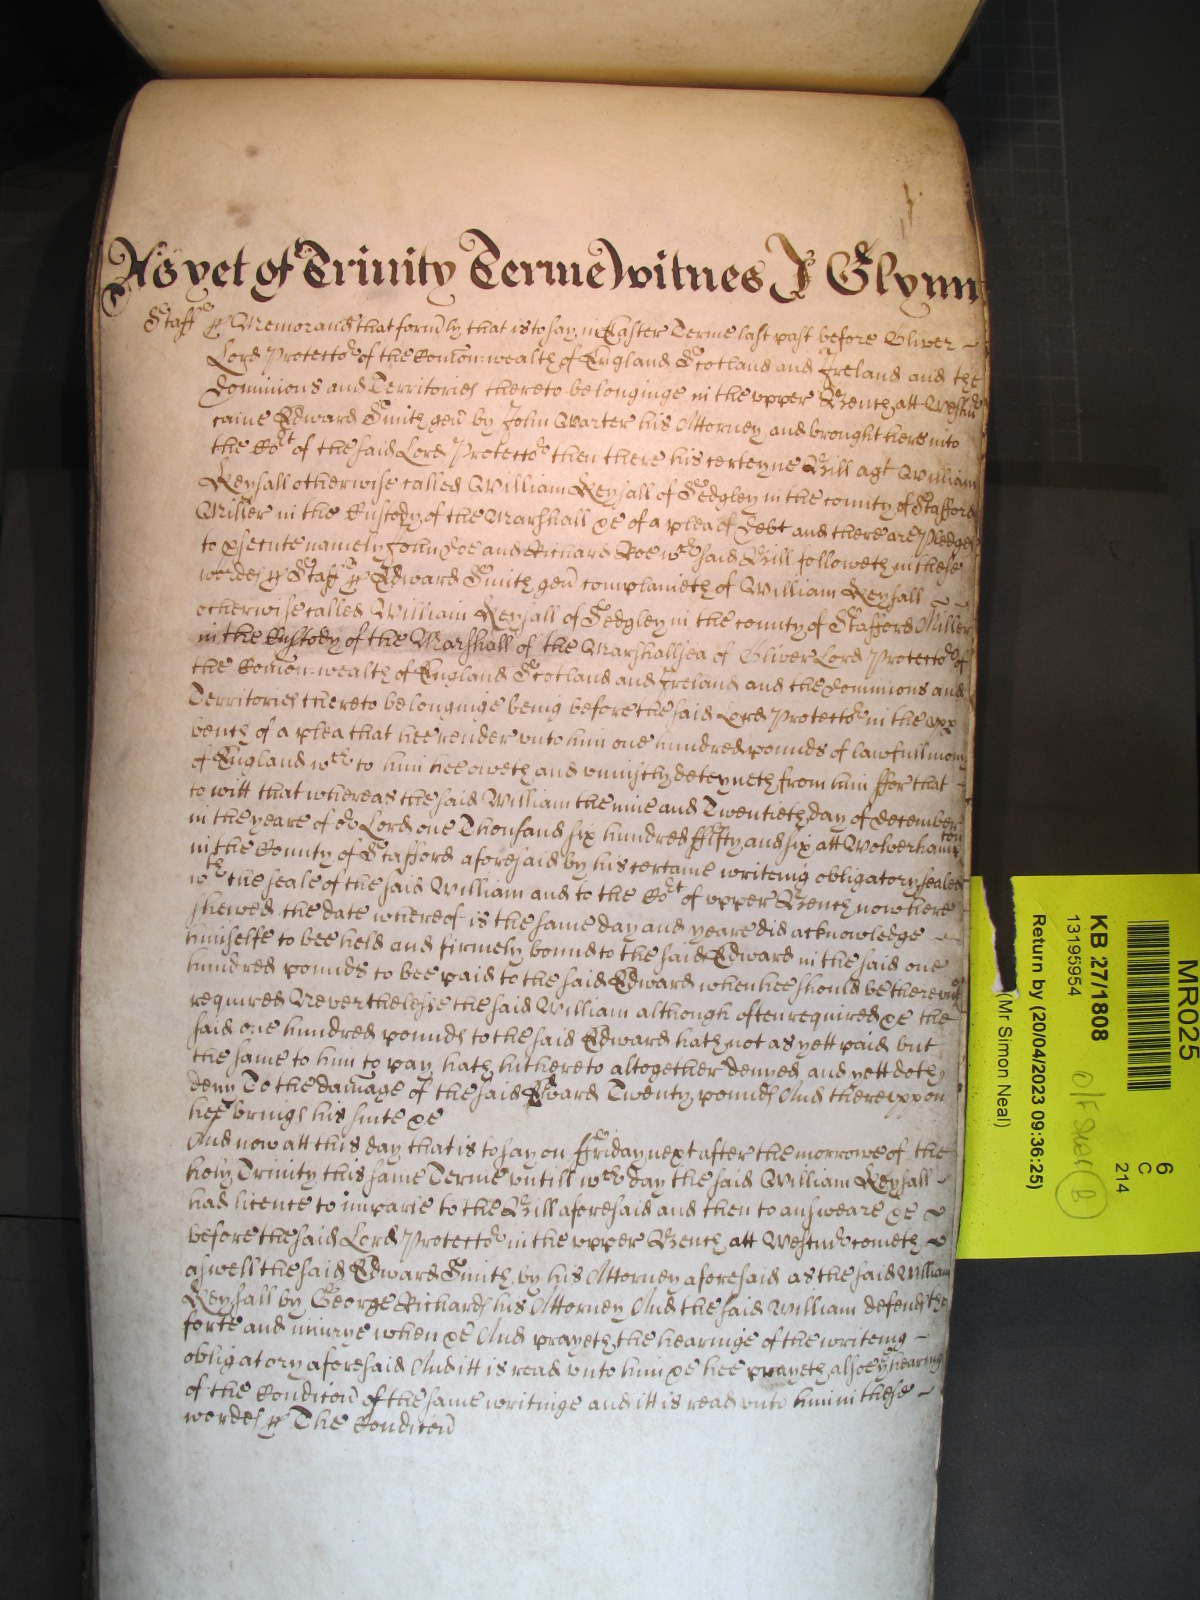 As yet of Trinity Terme witnes J Glynn
Staff ss Memorand that form̄ly that is to say in Easter Terme last past before Oliver
Lord Protecto^r of the Com̄onwealth of England Scotland and Ireland and the
Dominions and Territories thereto belonginge in the vpper Bench att Westm^r
came Edward Smith gen̄ by John Warter his Attorney and brought here into
the Co^rt of the said Lord Protecto^r then there his certeyne Bill ag^t William
Reysall otherwise called William Reysall of Sedgley in the county of Stafford
Miller in the Custody of the Marshall &c of a plea of Debt and there are Pledges
to p̱secute namely John Doe and Richard Roe w^ch said Bill followeth in these
wordes ss Staff ss Edward Smith gen̄ complaineth of William Reysall
otherwise called William Reysall of Sedgley in the county of Stafford Miller
in the Custody of the Marshall of the Marshallsea of Oliver Lord Protecto^r of
the Com̄onwealth of England Scotland and Ireland and the Dominions and
Territories thereto belonginge being before the said Lord Protecto^r in the vpp
bench of a plea that hee render vnto him one hundred pounds of lawfull mony
of England w^ch to him hee oweth and vniustly deteyneth from him ffor that
to witt that whereas the said William the nine and Twentieth day of December
in the yeare of o^r Lord one Thousand six hundred ffifty and six att Wolverhamp ton
in the County of Stafford aforesaid by his certaine writeing obligatory sealed
w^th the seale of the said William and to the Co^rt of vpper Bench now here
shewed the date whereof is the same day and yeare did acknowledge
himselfe to bee held and firmely bound to the said Edward in the said one
hundred pounds to bee paid to the said Edward when hee should be therevnto
required Neverthelesse the said William although often required &c the
said one hundred pounds to the said Edward hath not as yett paid but
the same to him to pay hath hithereto altogether denyed and yett doth
deny To the damage of the said Edward Twenty pounds And therevppon
hee brings his suite &c
And now att this day that is to say on ffriday next after the morrowe of the
holy Trinity this same Terme vntill w^ch day the said William Reysall
had licence to imparle to the Bill aforesaid and then to answeare &c
before the said Lord Protecto^r in the vpper Bench att Westm^r cometh
aswell the said Edward Smith by his Attorney aforesaid as the said William
Reysall by George Richards his Attorney And the said William defends the
force and iniurye when &c And prayeth the hearinge of the writeing
obligatory aforesaid And itt is read vnto him &c hee prayeth alsoe y^e hearing
of the Condic̄on of the same writinge and itt is read vnto him in these
wordes ss The Condic̄on
MR025
6
C
214
KB 27/1808
13195954
O/F Shelf B
Return by (20/04/2023 09:36:25)
(Mr Simon Neal)